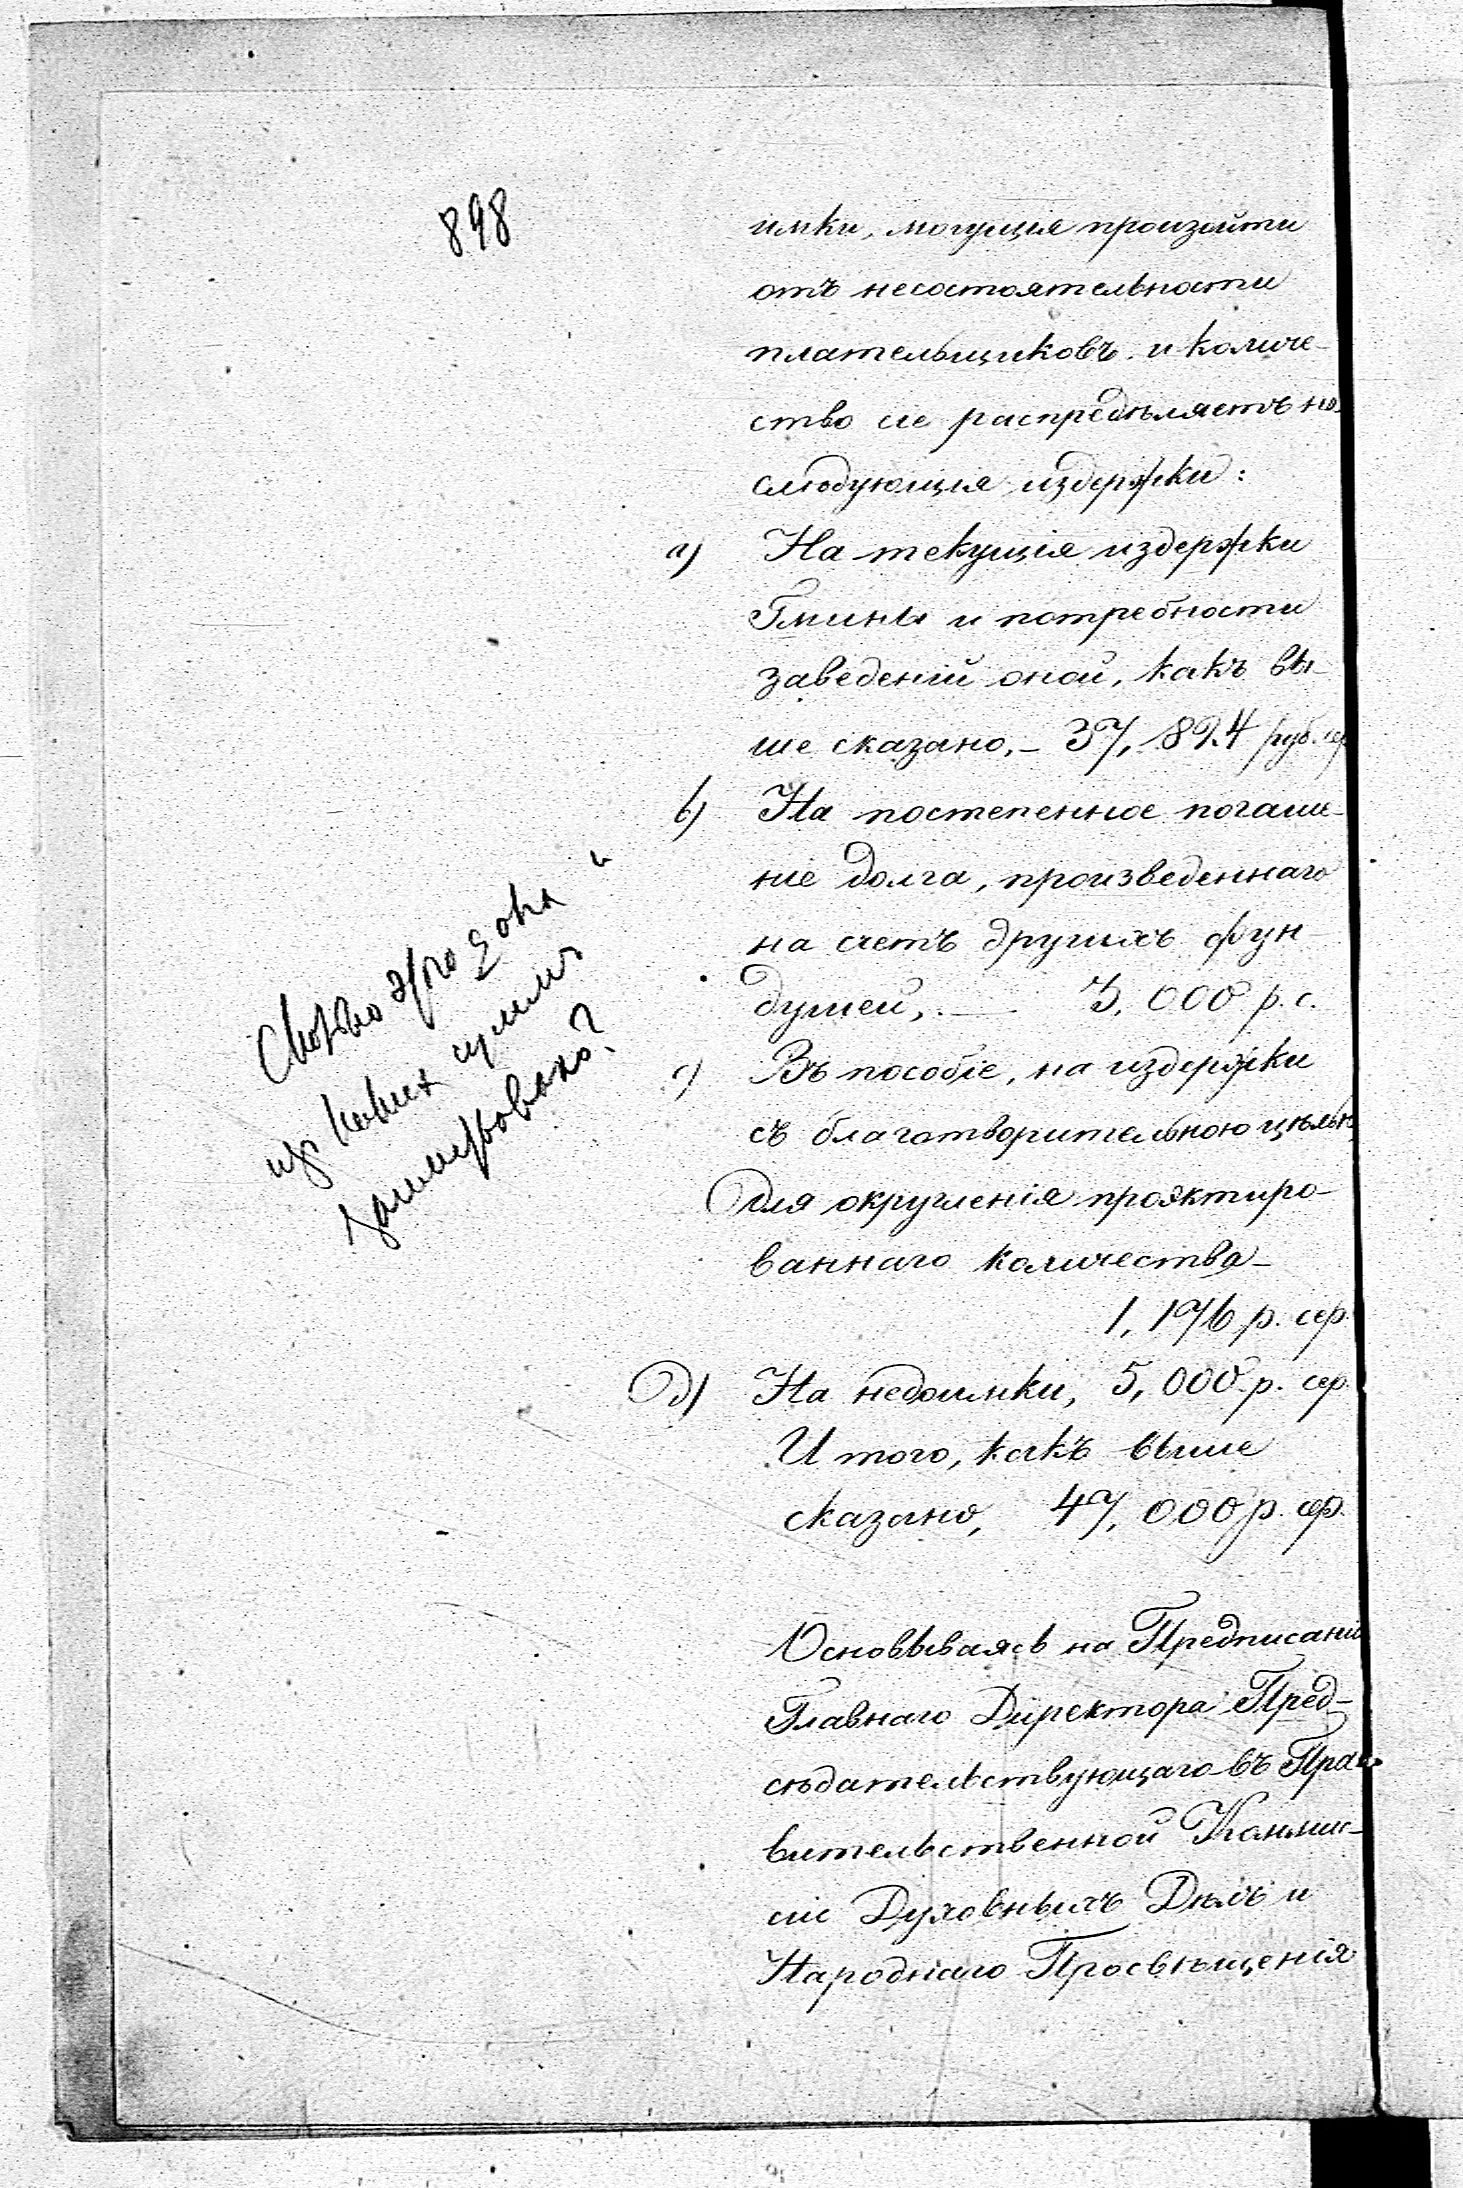 898
имки, могущія произойти
отъ несостоятельности
плательщиковъ. и количе-
ство сіе распредѣляетъ на
слѣдующія издержки:
а) На текущія издержки
Гмины и потребности
заведеній оной, какъ вы-
ше сказано, - 37,824 руб. сер
b) На постепенное погаше-
ніе долга, произведеннаго
на счетъ другихъ фун-
душей, 3,000 р. с.
с) Въ пособіе, на издержки
съ благотворительною цѣлью
для округленія прояктиро-
ваннаго количества -
1,176 р. сер.
d) На недоимки, 5,000 р. сер.
Итого, какъ выше
сказано, 47,000 р. сер.
Основываясь на Предписаніи
Главнаго Директора Пред-
сѣдательствующаго въ Пра-
вительственной Коммис-
сіи Духовныхъ Дѣлъ и
Народнаго Просвѣщенія
и
из каких сумм
заимствовано?